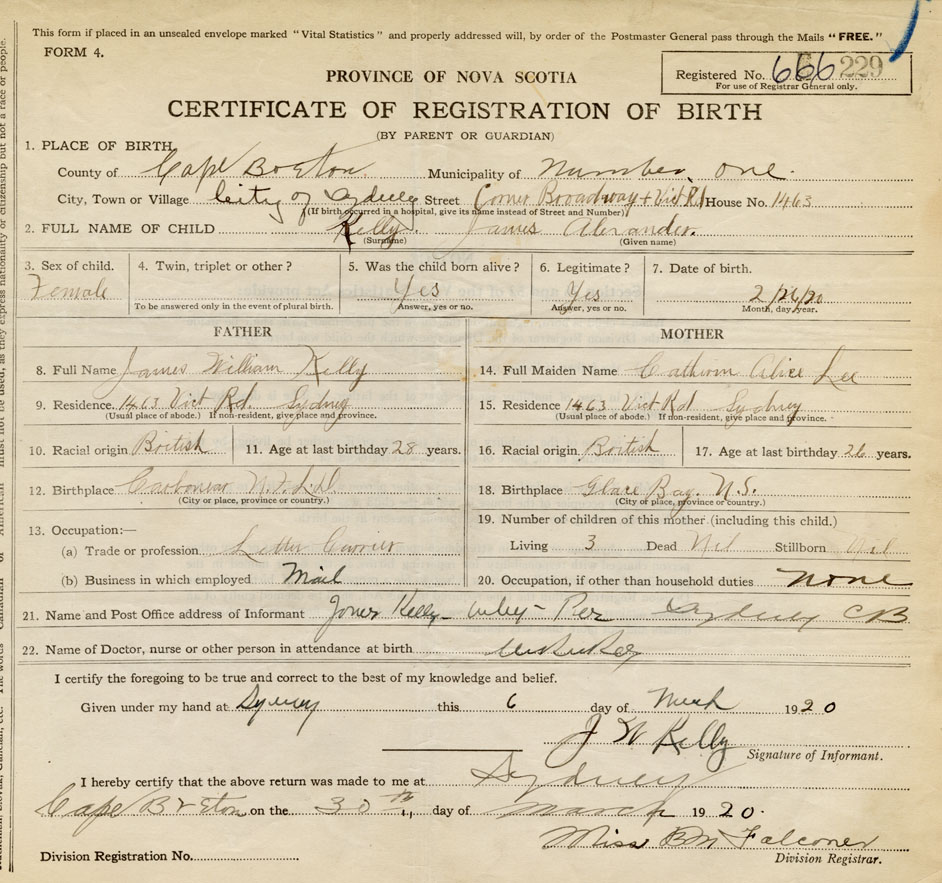 This form if placed in an unsealed envelope marked "Vital Statistics" and properly addressed will, by order of the Postmaster General pass through the Mails "FREE."
FORM 4.
Registered No. 666 229
For use of Registrar General only.
PROVINCE OF NOVA SCOTIA
CERTIFICATE OF REGISTRATION OF BIRTH
(BY PARENT OR GUARDIAN)
1. PLACE OF BIRTH
County of Cape Breton Municipality of Number one.
City, Town or Village City of Sydney Street Corner Broadway + Vict Rd House No. 1463
(If birth occurred in a hospital, give its name instead of Street and Number)
2. FULL NAME OF CHILD Kelly James Alexander.
(Surname) (Given name)
3. Sex of child. 4. Twin, triplet or other? 5. Was the child born alive? 6. Legitimate? 7. Date of birth.
Female Yes Yes 2/26/20
To be answered only in the event of plural birth. Answer, yes or no. Answer, yes or no. Month, day, year.
FATHER
8. Full Name James William Kelly
9. Residence. 1463 Vict Rd. Sydney
(Usual place of abode.) If non-resident, give place and province.
10. Racial origin British 11. Age at last birthday 28 years.
12. Birthplace Carbonear N.F.L'd
(City or place, province or country.)
13. Occupation:—
(a) Trade or profession Letter Carrier
(b) Business in which employed Mail
MOTHER
14. Full Maiden Name Alice Lee
15. Residence 1463 Vict Rd Sydney
(Usual place of abode.) If non-resident, give place and province.
16. Racial origin British 17. Age at last birthday 26 years.
18. Birthplace Glace Bay. N.S.
(City or place, province or country.)
19. Number of children of this mother (including this child.)
Living 3 Dead Nil Stillborn Nil
20. Occupation, if other than household duties none
21. Name and Post Office address of Informant Kelly Sydney CB
22. Name of Doctor, nurse or other person in attendance at birth.
I certify the foregoing to be true and correct to the best of my knowledge and belief.
Given under my hand at Sydney this 6 day of 1920
J W Kelly
Signature of Informant.
I hereby certify that the above return was made to me at Sydney
Cape Breton on the 30th day of march 1920.
Miss BM Falconer
Division Registrar.
Division Registration No.